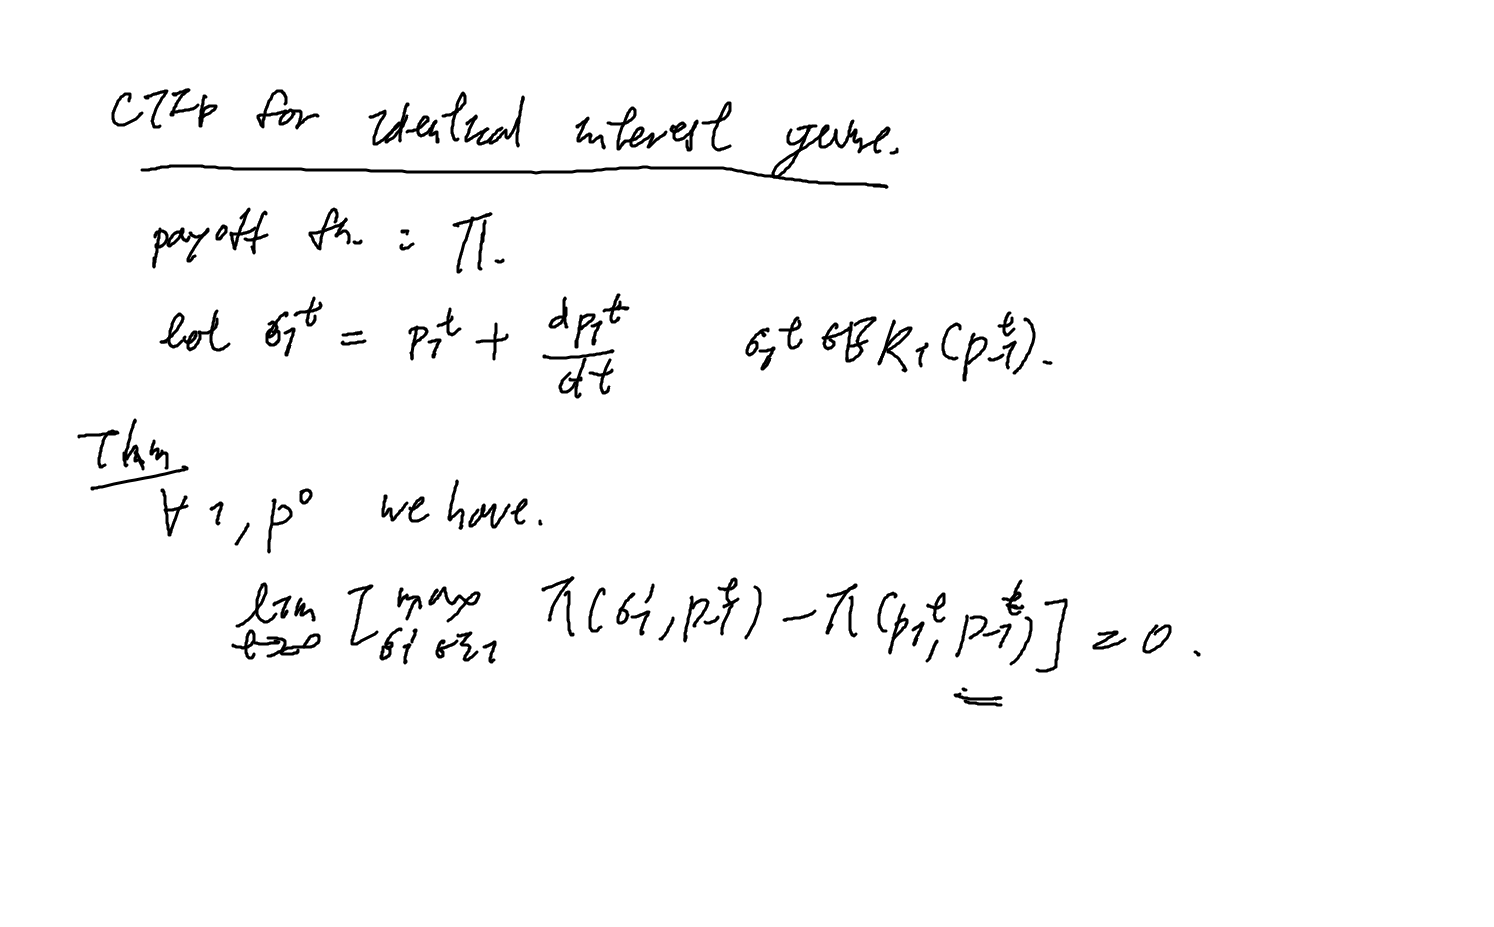 CTFP for identical interest game.
payoff fn. = Π.
let σᵢᵗ = pᵢᵗ + dpᵢᵗ/dt σᵢᵗ ∈ BRᵢ(p₋ᵢᵗ).
Thm
∀ i, p⁰ we have.
lim t→∞ [max σᵢ' ∈ Σᵢ Π(σᵢ', p₋ᵢᵗ) − Π(pᵢᵗ, p₋ᵢᵗ)] = 0.